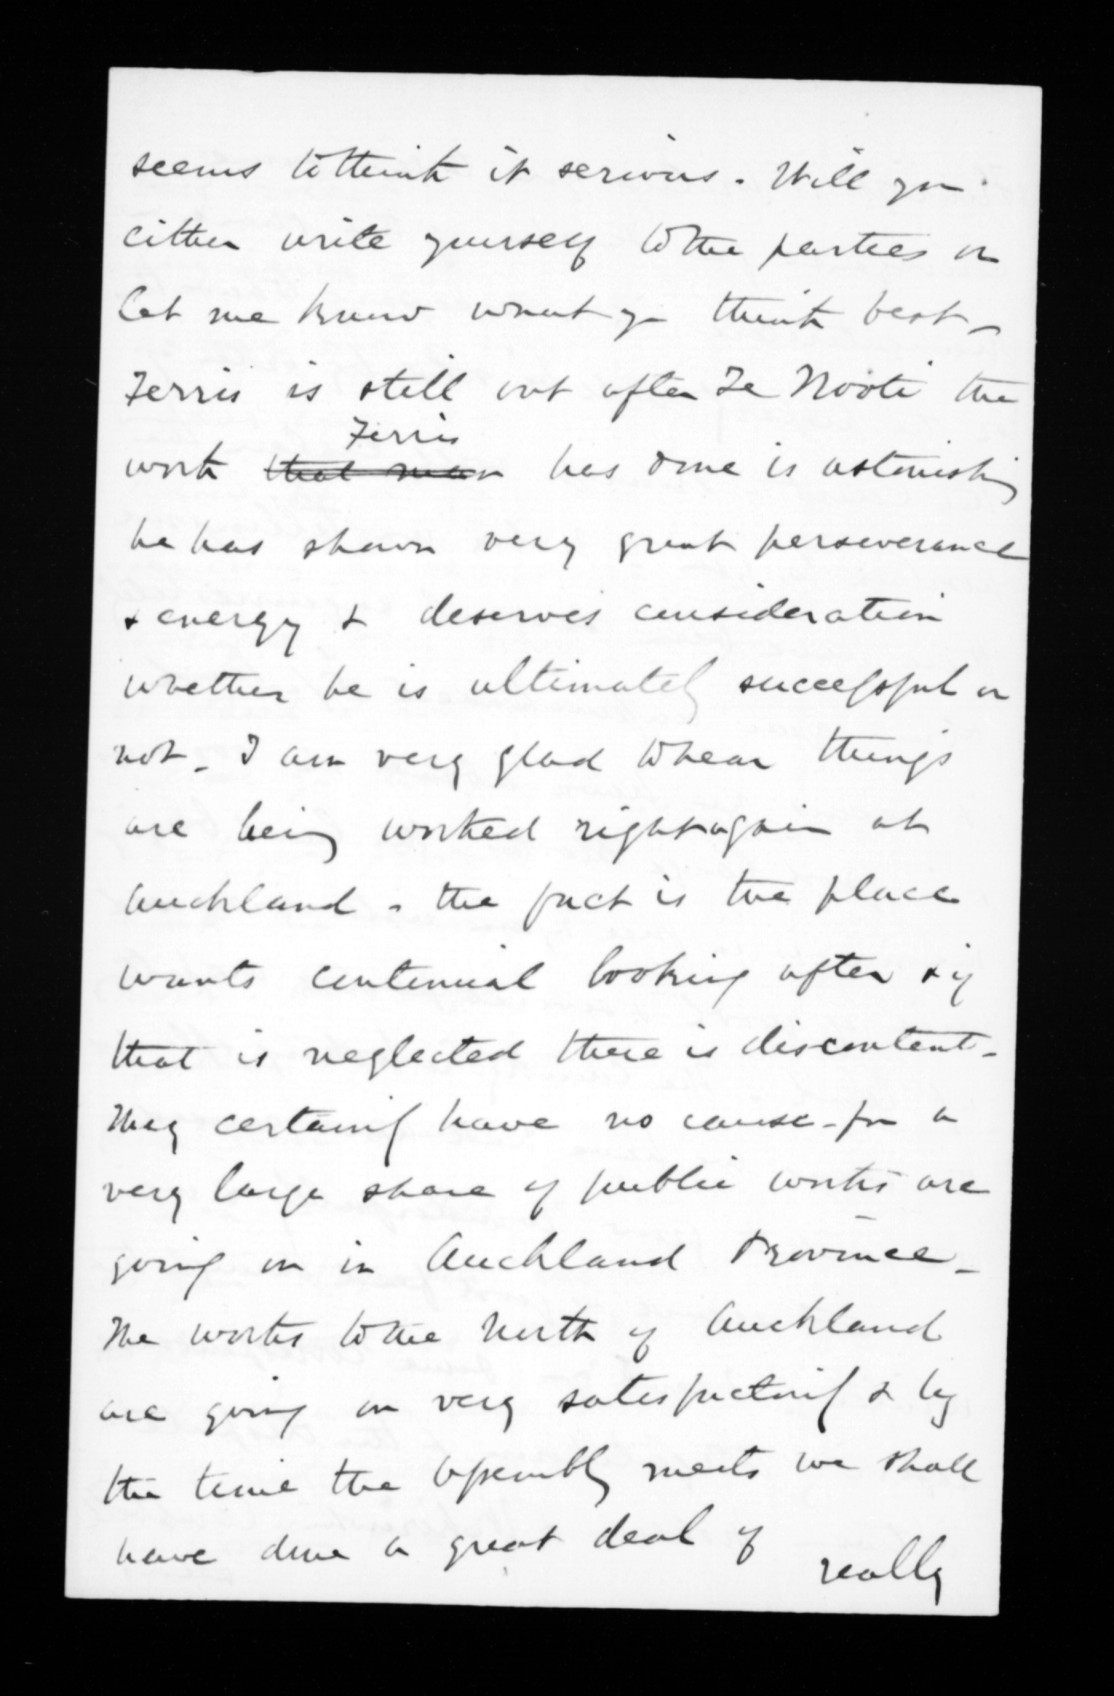 seems to think it serious. Will you
either write yourself to the parties or
let me know what you think best -
Ferris is still out after Te Kooti the
Ferris
work that man has done is astonishing
he has shown very great perseverance
& energy & deserves consideration
whether he is ultimately successful or
not. I am very glad to hear things
are being worked right again at
Auckland. the fact is the place
wants continual looking after & if
that is neglected there is discontent -
They certainly have no cause - for a
very large share of public works are
going on in Auckland Province -
The works to the North of Auckland
are going on very satisfactorily & by
the time the Assembly meets we shall
have done a great deal of
really